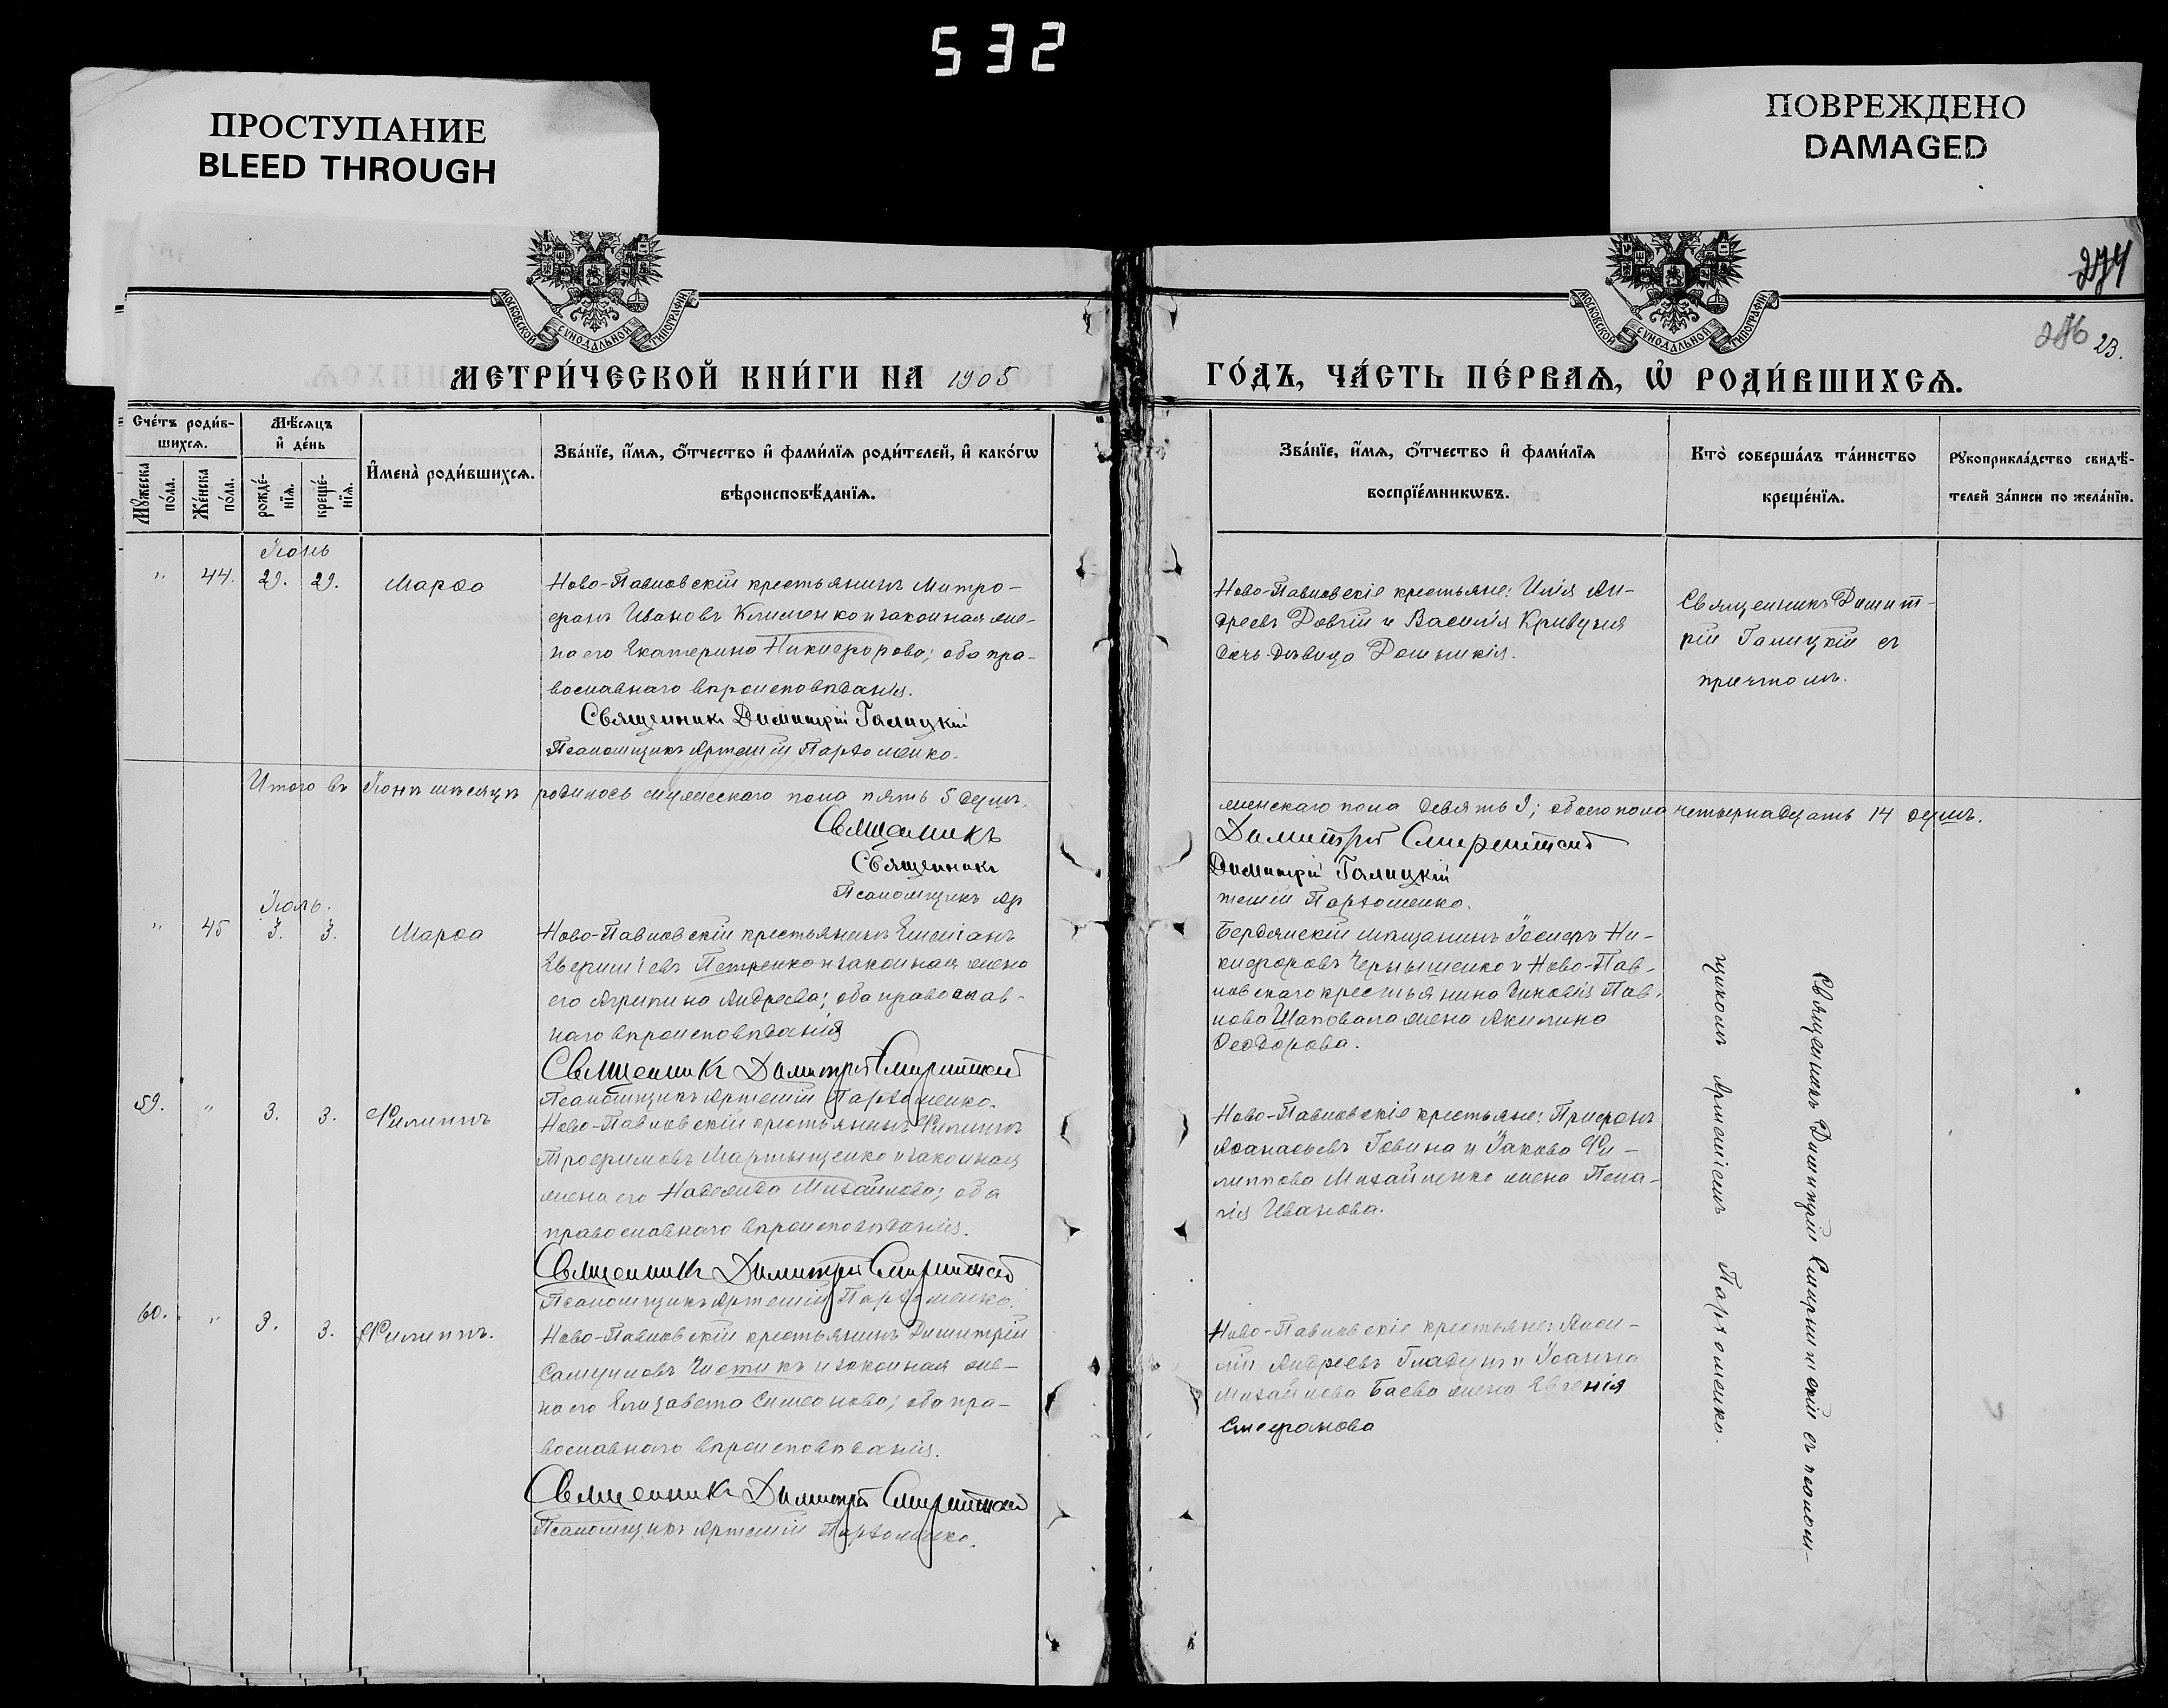 532
ПРОСТУПАНИЕ
BLEED THROUGH
ПОВРЕЖДЕНО
DAMAGED
МОСКОВСКОЙ СѴНОДАЛЬНОЙ ТИПОГРАФІИ
МОСКОВСКОЙ СѴНОДАЛЬНОЙ ТИПОГРАФІИ
274
23.
МЕТРИ́ЧЕСКОЙ КНИ́ГИ НА 1905
ГО́ДЪ, ЧА́СТЬ ПЕ́РВАѦ, Ѡ҆ РОДИ́ВШИХСѦ.
Сче́тъ роди́в-
шихсѧ.
Мꙋжеска по́ла.
Же́нска по́ла.
Мѣ́сѧцъ
и҆ де́нь
рожде́-
нїѧ.
креще́-
нїѧ.
И҆мена̀ роди́вшихсѧ.
Зва́нїе, и҆́мѧ, ѻ҆́тчество и҆ фами́лїѧ роди́телей, и҆ како́гѡ
вѣроисповѣ́данїѧ.
Зва́нїе, и҆́мѧ, ѻ҆́тчество и҆ фами́лїѧ
воспрїе́мникѡвъ.
Кто̀ соверша́лъ та́инство
креще́нїѧ.
Рꙋкоприкла́дство свидѣ́-
телей за́писи по жела́нїю.
Іюнь
" 44. 29. 29. Марѳа
Ново-Павловскій крестьянинъ Митро-
фанъ Ивановъ Клименко и законная же-
на его Екатерина Никифорова; оба пра-
вославнаго вѣроисповѣданія.
Священникъ Димитрій Галицкій
Псаломщикъ Артемій Пархоменко.
Ново-Павловскіе крестьяне: Илія Ан-
дреевъ Довгій и Василія Кривуля
дочь-дѣвица Домникія.
Священникъ Димит-
рій Галицкій съ
причтомъ.
Итого въ Іюнѣ мѣсяцѣ родилось мужескаго пола пять 5 душъ,
женскаго пола девять 9; обоего пола четырнадцать 14 душъ.
Священникъ Димитрій Смиритскій
Священникъ Димитрій Галицкій
Псаломщикъ Артемій Пархоменко.
Іюль.
" 45 3. 3. Марѳа
Ново-Павловскій крестьянинъ Емиліанъ
Евфиміевъ Петренко и законная жена
его Агрипина Андреева; оба православ-
наго вѣроисповѣданія
Священникъ Димитрій Смиритскій
Псаломщикъ Артемій Пархоменко.
Бердянскій мѣщанинъ Іосифъ Ни-
кифоровъ Чернышенко и Ново-Пав-
ловскаго крестьянина Зиновія Пав-
лова Шаповала жена Акилина
Ѳеодорова.
59. " 3. 3. Филиппъ
Ново-Павловскій крестьянинъ Филиппъ
Трофимовъ Мартыщенко и законная
жена его Надежда Михайлова; оба
православнаго вѣроисповѣданія.
Священникъ Димитрій Смиритскій
Псаломщикъ Артемій Пархоменко.
Ново-Павловскіе крестьяне: Трифонъ
Аѳанасьевъ Говина и Іакова Фи-
липпова Михайленко жена Пела-
гія Иванова.
60. " 3. 3. Филиппъ.
Ново-Павловскій крестьянинъ Димитрій
Самуиловъ Чистикъ и законная же-
на его Елизавета Симеонова; оба пра-
вославнаго вѣроисповѣданія.
Священникъ Димитрій Смиритскій
Псаломщикъ Артемій Пархоменко.
Ново-Павловскіе крестьяне:
Андреевъ Гладунъ и Іоанна
Михайлова Баева жена Евгенія
Стефанова
Священникъ Димитрій съ псалом-
щикомъ Артеміемъ Пархоменко.